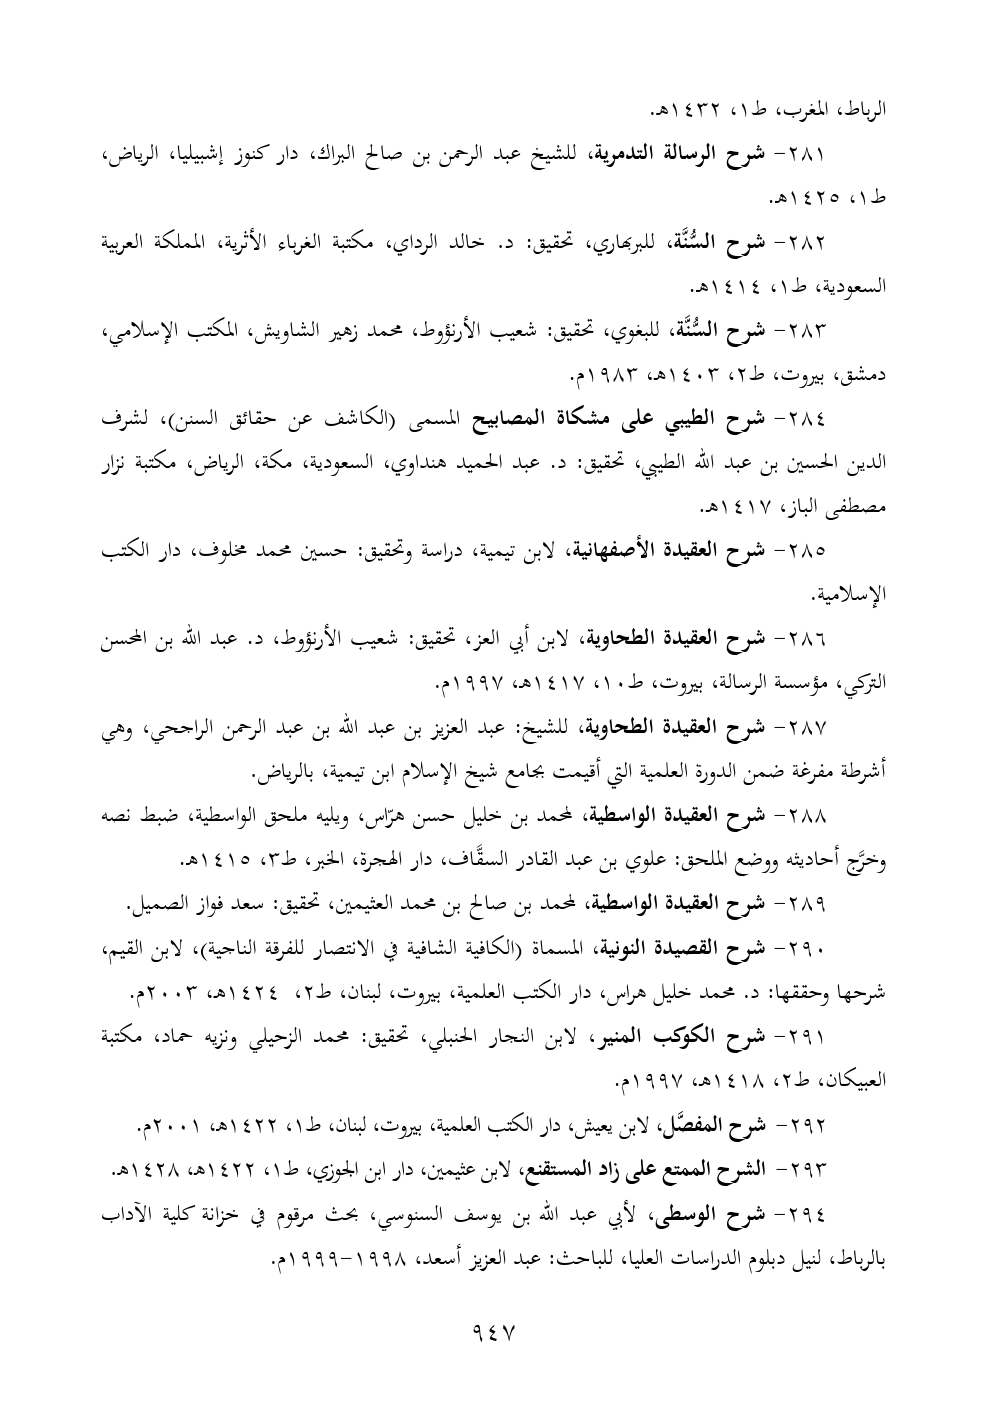 الرباط، المغرب، ط١، ١٤٣٢هـ.
٢٨١- شرح الرسالة التدمرية، للشيخ عبد الرحمن بن صالح البراك، دار كنوز إشبيليا، الرياض،
ط١، ١٤٢٥هـ.
٢٨٢- شرح السُّنَّة، للبربهاري، تحقيق: د. خالد الرداي، مكتبة الغرباء الأثرية، المملكة العربية
السعودية، ط١، ١٤١٤هـ.
٢٨٣- شرح السُّنَّة، للبغوي، تحقيق: شعيب الأرنؤوط، محمد زهير الشاويش، المكتب الإسلامي،
دمشق، بيروت، ط٢، ١٤٠٣هـ، ١٩٨٣م.
٢٨٤- شرح الطيبي على مشكاة المصابيح المسمى (الكاشف عن حقائق السنن)، لشرف
الدين الحسين بن عبد الله الطيبي، تحقيق: د. عبد الحميد هنداوي، السعودية، مكة، الرياض، مكتبة نزار
مصطفى الباز، ١٤١٧هـ.
٢٨٥- شرح العقيدة الأصفهانية، لابن تيمية، دراسة وتحقيق: حسين محمد مخلوف، دار الكتب
الإسلامية.
٢٨٦- شرح العقيدة الطحاوية، لابن أبي العز، تحقيق: شعيب الأرنؤوط، د. عبد الله بن المحسن
التركي، مؤسسة الرسالة، بيروت، ط١٠، ١٤١٧هـ، ١٩٩٧م.
٢٨٧- شرح العقيدة الطحاوية، للشيخ: عبد العزيز بن عبد الله بن عبد الرحمن الراجحي، وهي
أشرطة مفرغة ضمن الدورة العلمية التي أقيمت بجامع شيخ الإسلام ابن تيمية، بالرياض.
٢٨٨- شرح العقيدة الواسطية، لمحمد بن خليل حسن هرّاس، ويليه ملحق الواسطية، ضبط نصه
وخرَّج أحاديثه ووضع الملحق: علوي بن عبد القادر السقَّاف، دار الهجرة، الخبر، ط٣، ١٤١٥هـ.
٢٨٩- شرح العقيدة الواسطية، لمحمد بن صالح بن محمد العثيمين، تحقيق: سعد فواز الصميل.
٢٩٠- شرح القصيدة النونية، المسماة (الكافية الشافية في الانتصار للفرقة الناجية)، لابن القيم،
شرحها وحققها: د. محمد خليل هراس، دار الكتب العلمية، بيروت، لبنان، ط٢، ١٤٢٤هـ، ٢٠٠٣م.
٢٩١- شرح الكوكب المنير، لابن النجار الحنبلي، تحقيق: محمد الزحيلي ونزيه حماد، مكتبة
العبيكان، ط٢، ١٤١٨هـ، ١٩٩٧م.
٢٩٢- شرح المفصَّل، لابن يعيش، دار الكتب العلمية، بيروت، لبنان، ط١، ١٤٢٢هـ، ٢٠٠١م.
٢٩٣- الشرح الممتع على زاد المستقنع، لابن عثيمين، دار ابن الجوزي، ط١، ١٤٢٢هـ، ١٤٢٨هـ.
٢٩٤- شرح الوسطى، لأبي عبد الله بن يوسف السنوسي، بحث مرقوم في خزانة كلية الآداب
بالرباط، لنيل دبلوم الدراسات العليا، للباحث: عبد العزيز أسعد، ١٩٩٨-١٩٩٩م.
٩٤٧